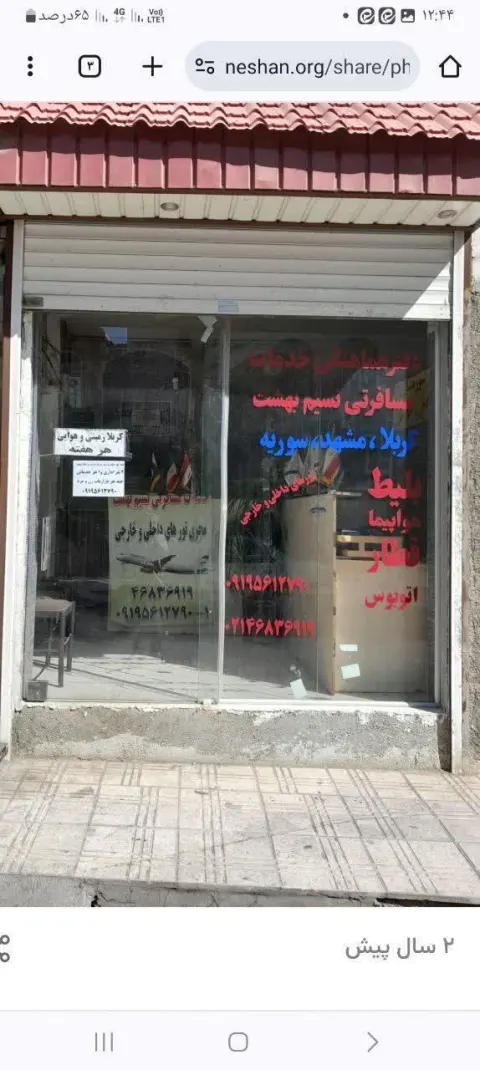 ۱۲:۴۴
۶۵درصد
4G
Vo))
LTE1
۳
neshan.org/share/ph
دفترهماهنگی خدمات
مسافرتی نسیم بهشت
کربلا ، مشهد، سوریه
بلیط
هواپیما
قطار
اتوبوس
تورهای داخلی و خارجی
۰۹۱۹۵۶۱۲۷۹۰
۰۲۱۴۶۸۳۶۹۱۹
کربلا زمینی و هوایی
هر هفته
۰۹۱۹۵۶۱۲۷۹۰
خدمات مسافرتی نسیم بهشت
مجری تور های داخلی و خارجی
۴۶۸۳۶۹۱۹
۰۹۱۹۵۶۱۲۷۹۰-۱
۲ سال پیش